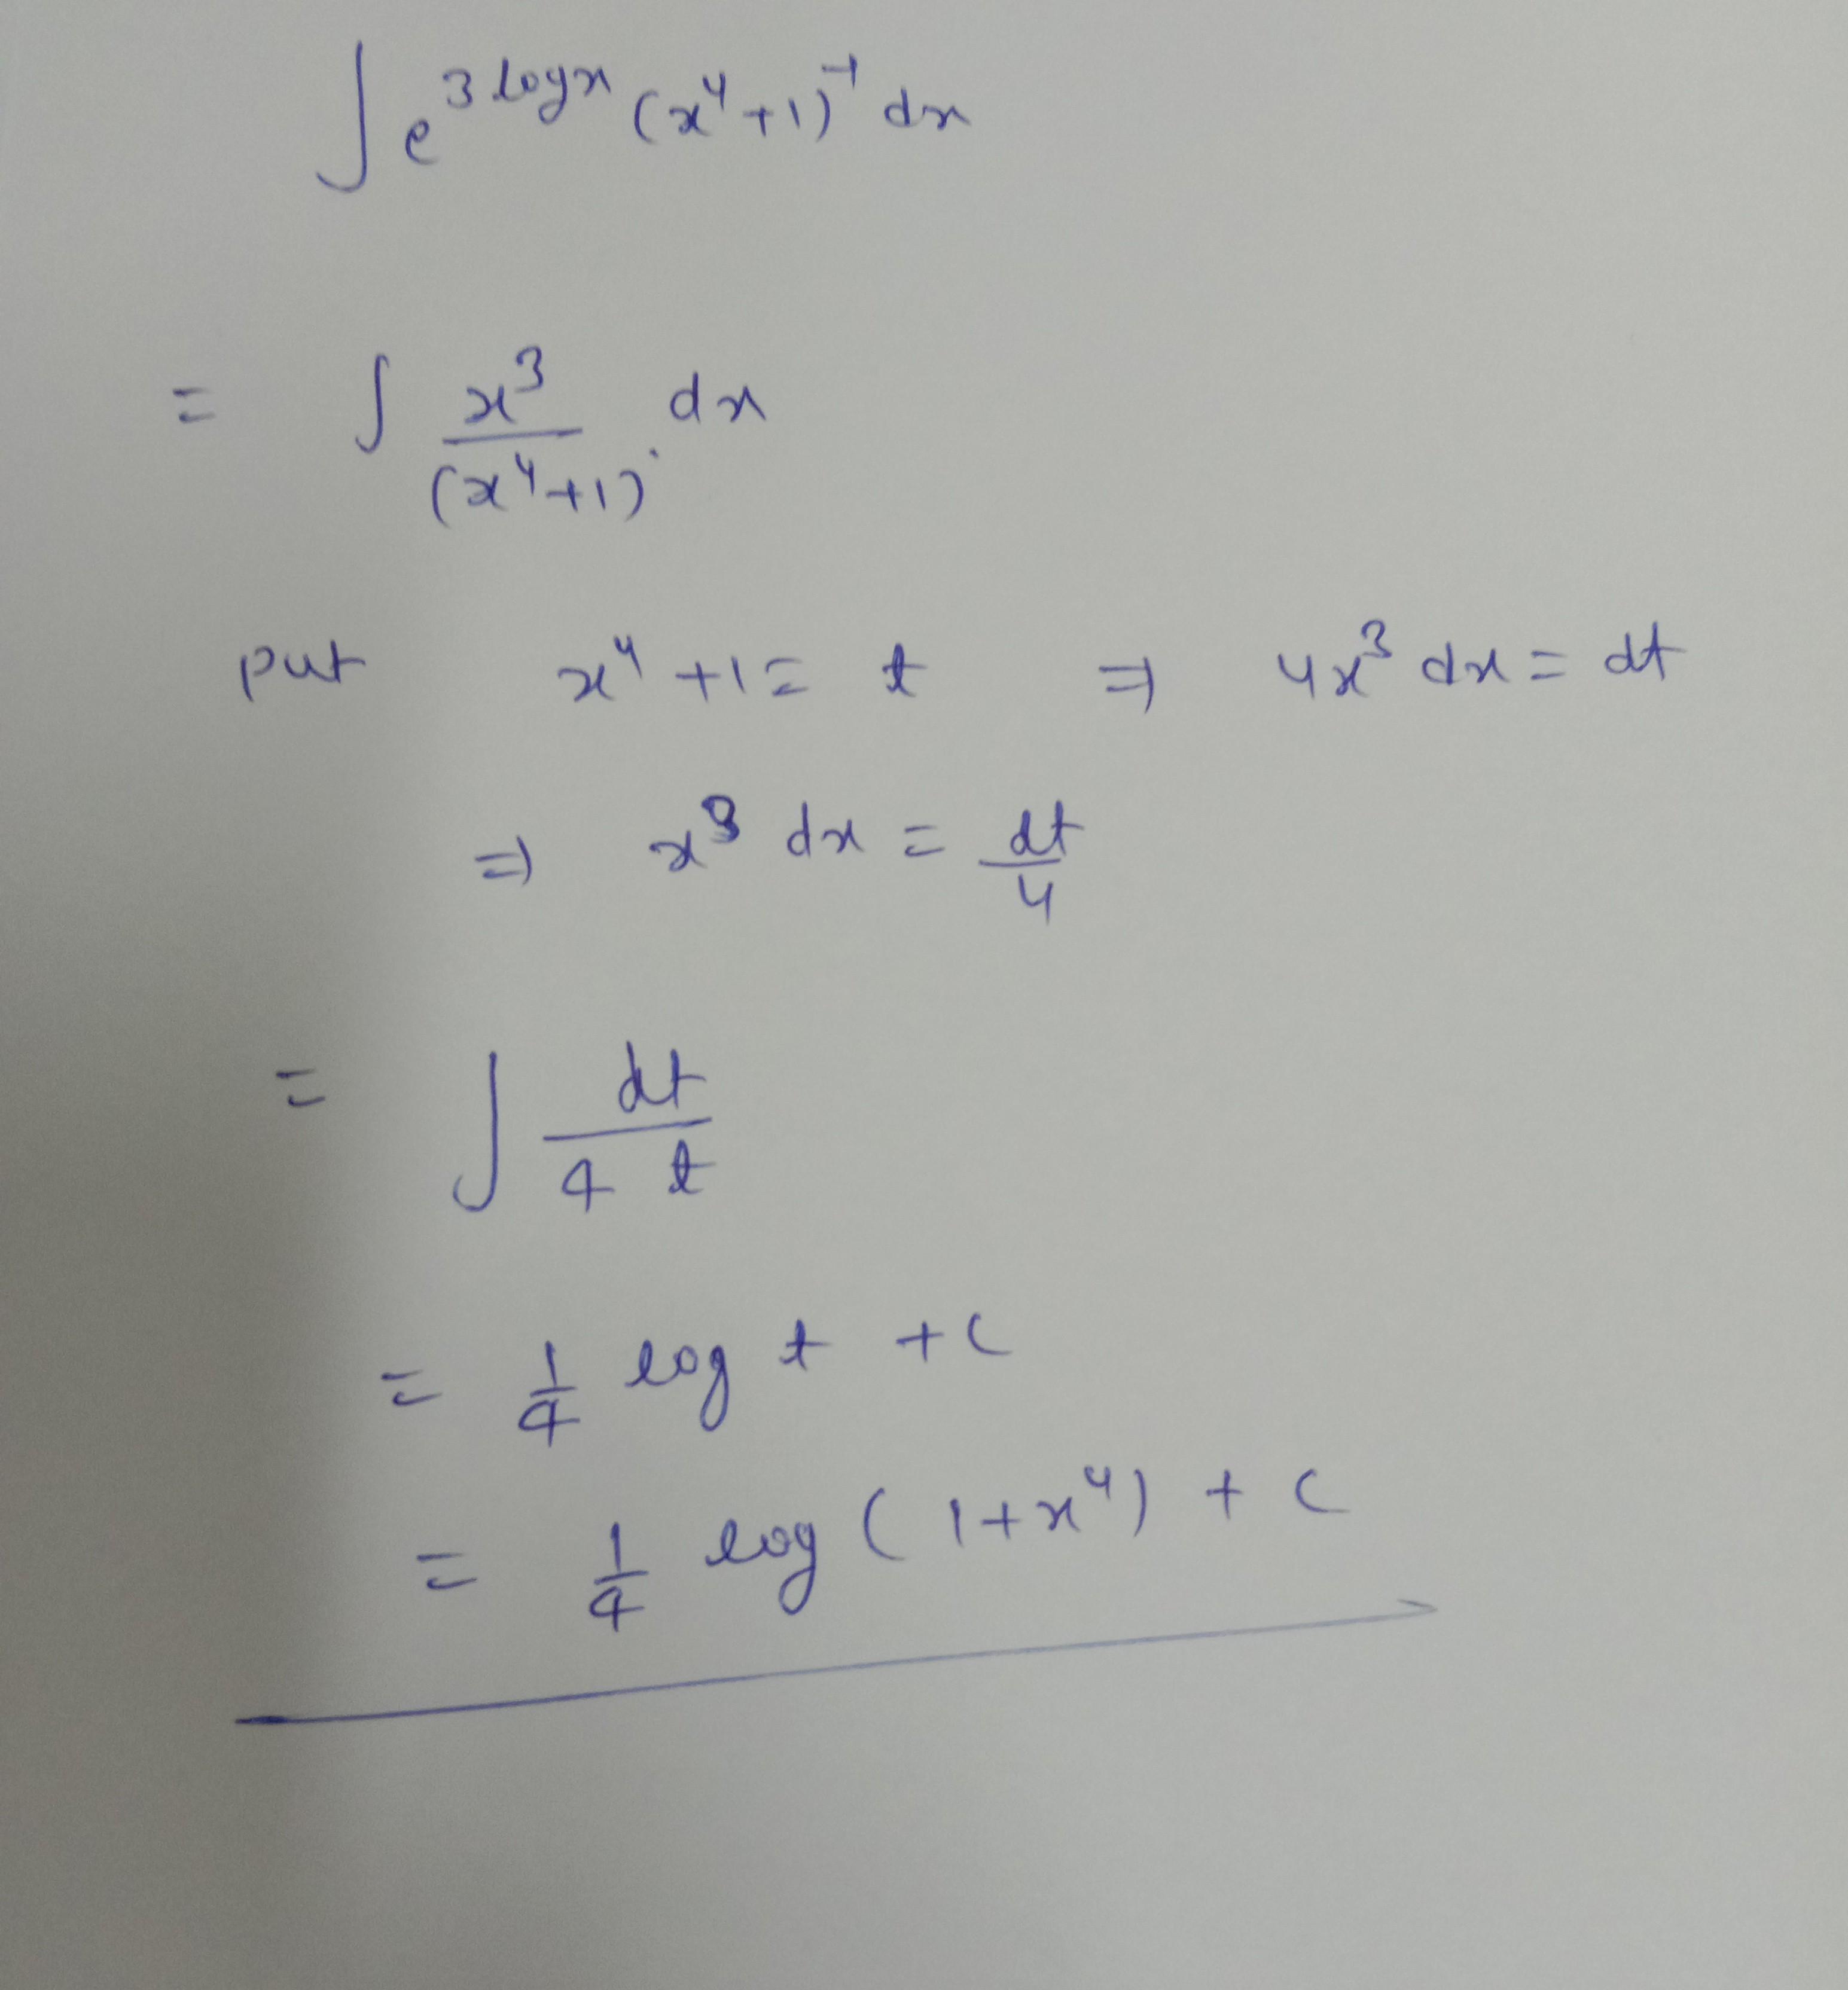 ∫ e^{3 log x} (x^4+1)^{-1} dx
= ∫ x^3/(x^4+1) dx
put x^4+1 = t ⇒ 4x^3 dx = dt
⇒ x^3 dx = dt/4
= ∫ dt/(4 t)
= 1/4 log t + C
= 1/4 log (1+x^4) + C